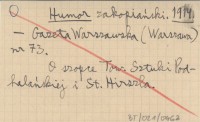 Humor zakopiański. 1914
– Gazeta Warszawska (Warszawa)
nr 73.
O szopce Tow. Sztuki Pod-
halańskiej i St. Hirszla.